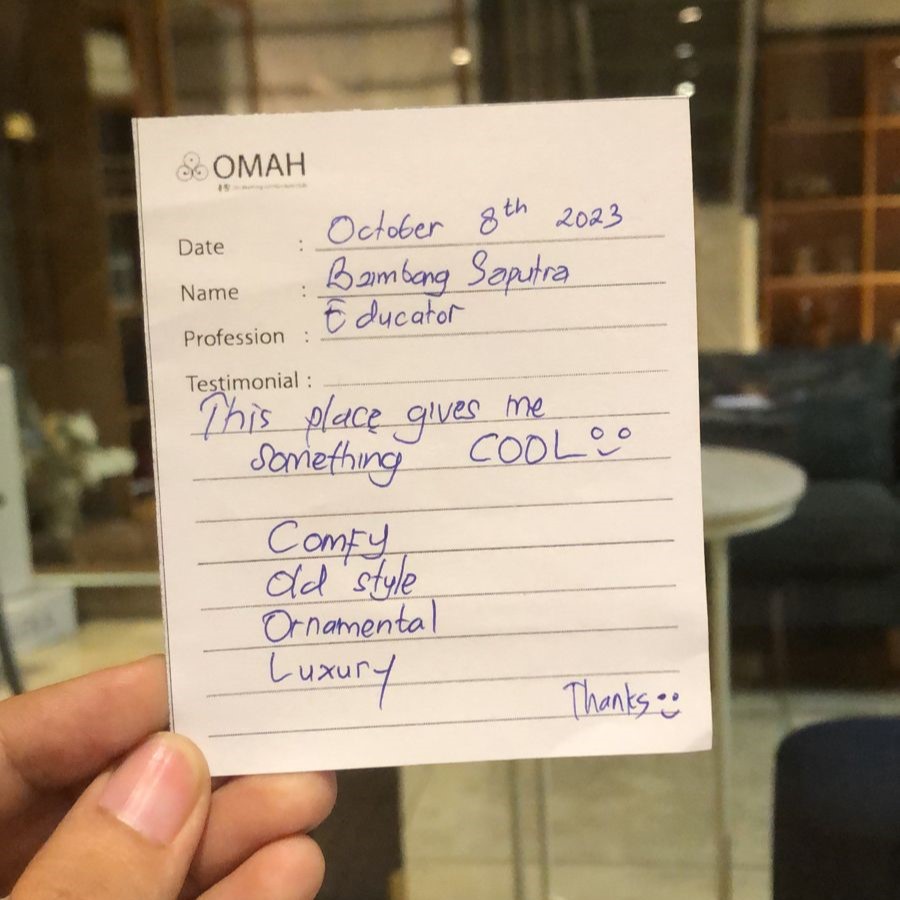 OMAH
Date : October 8th 2023
Name : Bambang Saputra
Profession : Educator
Testimonial :
This place gives me
something COOL
Comfy
Old style
Ornamental
Luxury
Thanks